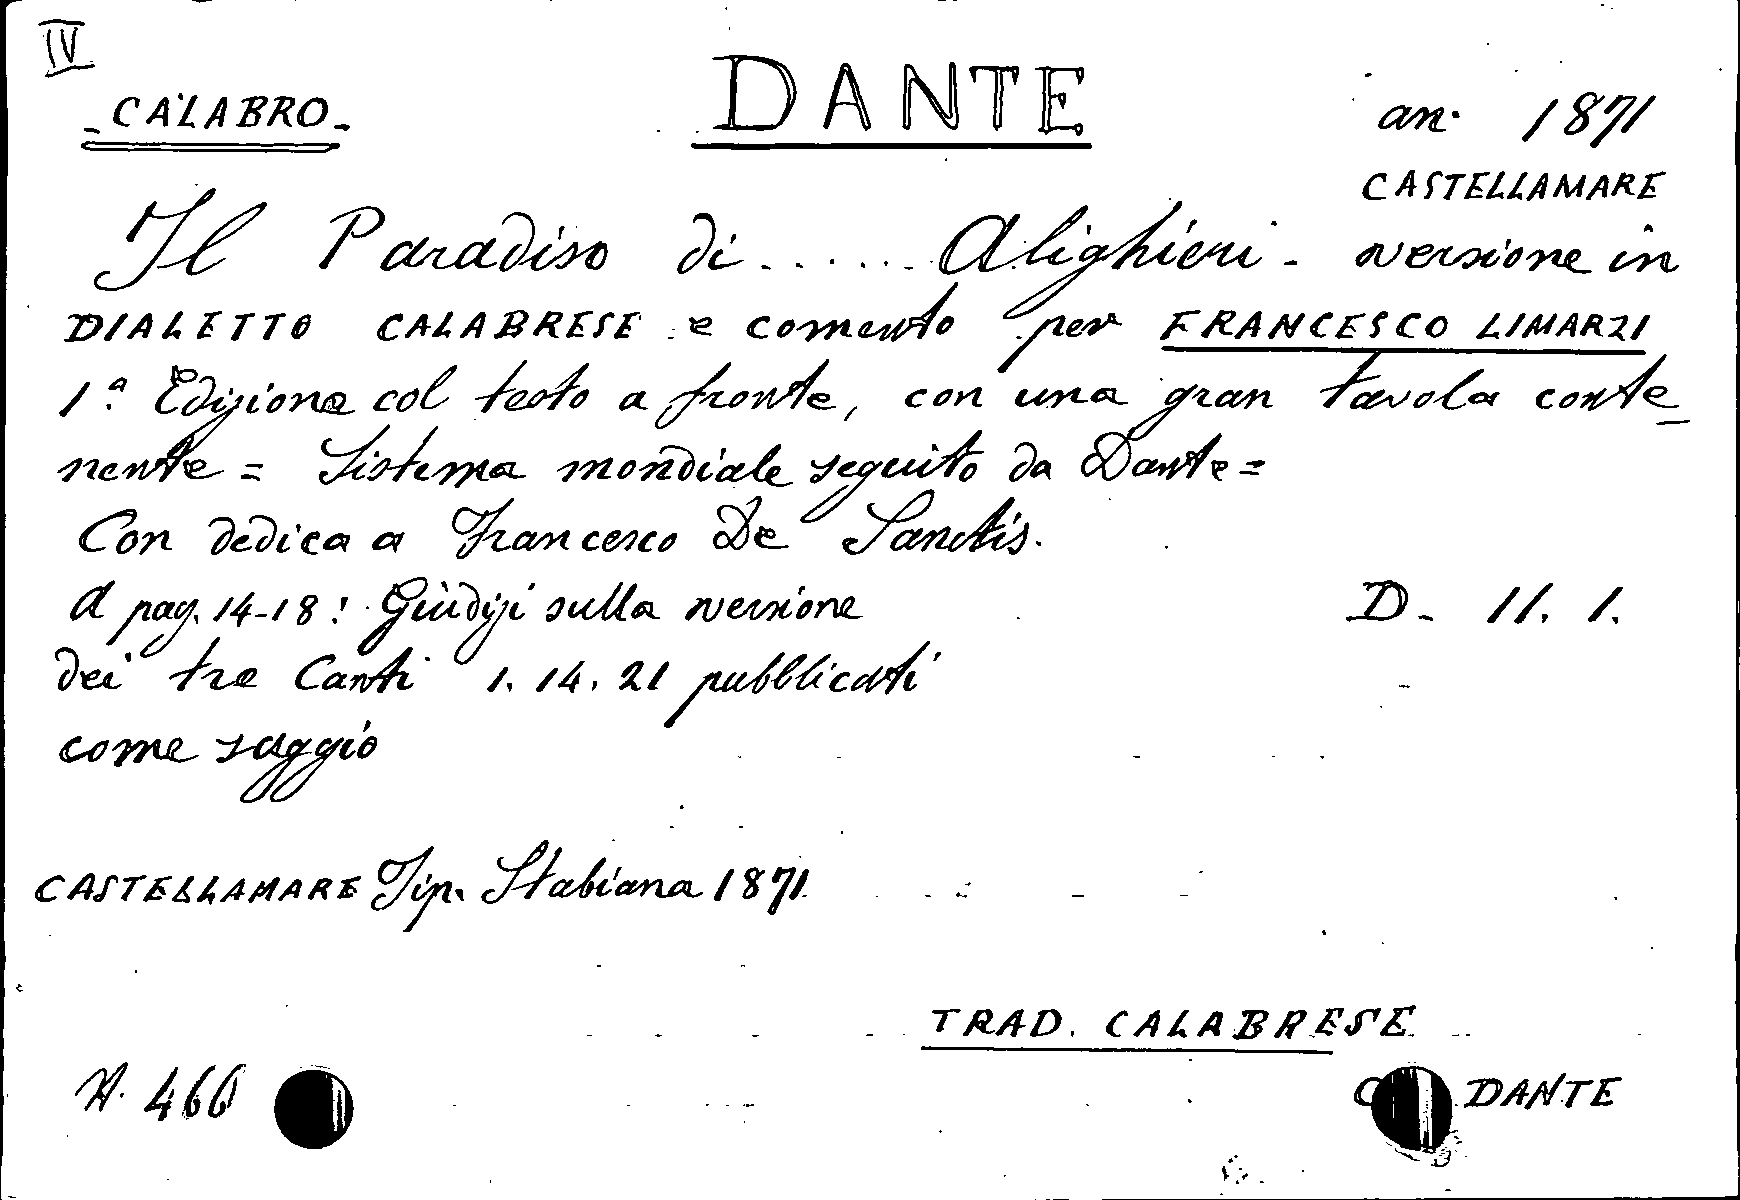 IV
- CALABRO -
DANTE
an. 1871
CASTELLAMARE
Il Paradiso di ...... Alighieri - versione in
DIALETTO CALABRESE e comento per FRANCESCO LIMARZI
1.ª Edizione col testo a fronte, con una gran tavola conte-
nente = Sistema mondiale seguito da Dante =
Con dedica a Francesco De Sanctis.
A pag. 14-18: Giudizi sulla versione
D. 11. 1.
dei tre Canti 1. 14. 21 pubblicati
come saggio
CASTELLAMARE Tip. Stabiana 1871
TRAD. CALABRESE
N. 466
DANTE